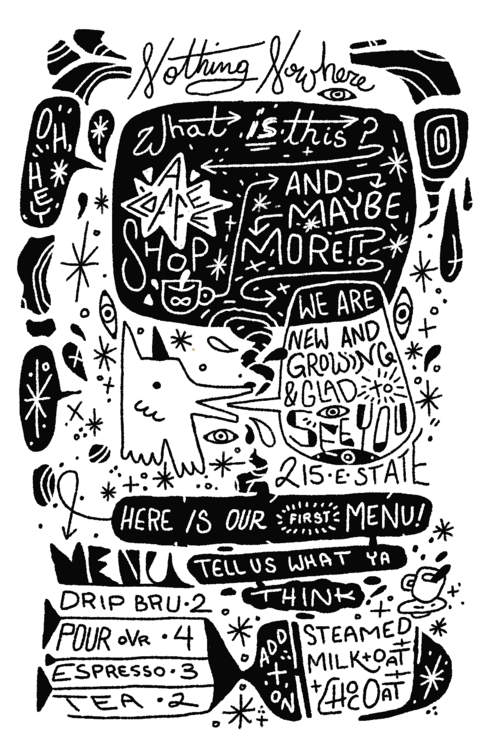 Nothing Nowhere
OH,
HEY
What is this?
A
CAFE
SHOP
AND
MAYBE
MORE!?
WE ARE
NEW AND
GROWING
& GLAD to
SEE YOU
215·E·STATE
HERE IS OUR FIRST MENU!
MENU
TELL US WHAT YA
THINK
DRIP BRU·2
POUR OVR·4
ESPRESSO·3
TEA·2
ADD
+
ON
STEAMED
MILK+OAT+
+CHOC OAT